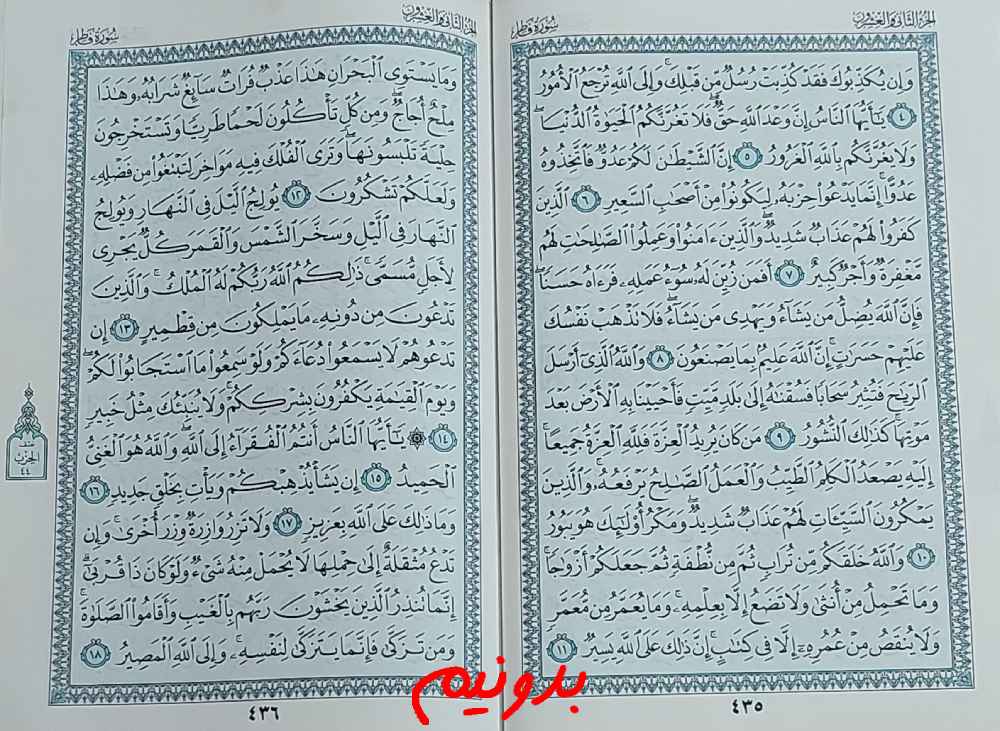 الجزء الثاني والعشرون
سورة فاطر
وَإِن يُكَذِّبُوكَ فَقَدْ كُذِّبَتْ رُسُلٌ مِّن قَبْلِكَ ۚ وَإِلَى اللَّهِ تُرْجَعُ الْأُمُورُ
٤ يَٰٓأَيُّهَا النَّاسُ إِنَّ وَعْدَ اللَّهِ حَقٌّ ۖ فَلَا تَغُرَّنَّكُمُ الْحَيَوٰةُ الدُّنْيَا ۖ
وَلَا يَغُرَّنَّكُم بِاللَّهِ الْغَرُورُ ٥ إِنَّ الشَّيْطَٰنَ لَكُمْ عَدُوٌّ فَاتَّخِذُوهُ
عَدُوًّا ۚ إِنَّمَا يَدْعُوا۟ حِزْبَهُۥ لِيَكُونُوا۟ مِنْ أَصْحَٰبِ السَّعِيرِ ٦ الَّذِينَ
كَفَرُوا۟ لَهُمْ عَذَابٌ شَدِيدٌ ۖ وَالَّذِينَ ءَامَنُوا۟ وَعَمِلُوا۟ الصَّٰلِحَٰتِ لَهُم
مَّغْفِرَةٌ وَأَجْرٌ كَبِيرٌ ٧ أَفَمَن زُيِّنَ لَهُۥ سُوٓءُ عَمَلِهِۦ فَرَءَاهُ حَسَنًا ۖ
فَإِنَّ اللَّهَ يُضِلُّ مَن يَشَآءُ وَيَهْدِى مَن يَشَآءُ ۖ فَلَا تَذْهَبْ نَفْسُكَ
عَلَيْهِمْ حَسَرَٰتٍ ۚ إِنَّ اللَّهَ عَلِيمٌۢ بِمَا يَصْنَعُونَ ٨ وَاللَّهُ الَّذِىٓ أَرْسَلَ
الرِّيَٰحَ فَتُثِيرُ سَحَابًا فَسُقْنَٰهُ إِلَىٰ بَلَدٍ مَّيِّتٍ فَأَحْيَيْنَا بِهِ الْأَرْضَ بَعْدَ
مَوْتِهَا ۚ كَذَٰلِكَ النُّشُورُ ٩ مَن كَانَ يُرِيدُ الْعِزَّةَ فَلِلَّهِ الْعِزَّةُ جَمِيعًا ۚ
إِلَيْهِ يَصْعَدُ الْكَلِمُ الطَّيِّبُ وَالْعَمَلُ الصَّٰلِحُ يَرْفَعُهُۥ ۚ وَالَّذِينَ
يَمْكُرُونَ السَّيِّـَٔاتِ لَهُمْ عَذَابٌ شَدِيدٌ ۖ وَمَكْرُ أُو۟لَٰٓئِكَ هُوَ يَبُورُ
١٠ وَاللَّهُ خَلَقَكُم مِّن تُرَابٍ ثُمَّ مِن نُّطْفَةٍ ثُمَّ جَعَلَكُمْ أَزْوَٰجًا ۚ
وَمَا تَحْمِلُ مِنْ أُنثَىٰ وَلَا تَضَعُ إِلَّا بِعِلْمِهِۦ ۚ وَمَا يُعَمَّرُ مِن مُّعَمَّرٍ
وَلَا يُنقَصُ مِنْ عُمُرِهِۦٓ إِلَّا فِى كِتَٰبٍ ۚ إِنَّ ذَٰلِكَ عَلَى اللَّهِ يَسِيرٌ ١١
٤٣٥
الجزء الثاني والعشرون
سورة فاطر
وَمَا يَسْتَوِى الْبَحْرَانِ هَٰذَا عَذْبٌ فُرَاتٌ سَآئِغٌ شَرَابُهُۥ وَهَٰذَا
مِلْحٌ أُجَاجٌ ۖ وَمِن كُلٍّ تَأْكُلُونَ لَحْمًا طَرِيًّا وَتَسْتَخْرِجُونَ
حِلْيَةً تَلْبَسُونَهَا ۖ وَتَرَى الْفُلْكَ فِيهِ مَوَاخِرَ لِتَبْتَغُوا۟ مِن فَضْلِهِۦ
وَلَعَلَّكُمْ تَشْكُرُونَ ١٢ يُولِجُ الَّيْلَ فِى النَّهَارِ وَيُولِجُ
النَّهَارَ فِى الَّيْلِ وَسَخَّرَ الشَّمْسَ وَالْقَمَرَ كُلٌّ يَجْرِى
لِأَجَلٍ مُّسَمًّى ۚ ذَٰلِكُمُ اللَّهُ رَبُّكُمْ لَهُ الْمُلْكُ ۚ وَالَّذِينَ
تَدْعُونَ مِن دُونِهِۦ مَا يَمْلِكُونَ مِن قِطْمِيرٍ ١٣ إِن
تَدْعُوهُمْ لَا يَسْمَعُوا۟ دُعَآءَكُمْ وَلَوْ سَمِعُوا۟ مَا اسْتَجَابُوا۟ لَكُمْ ۖ
وَيَوْمَ الْقِيَٰمَةِ يَكْفُرُونَ بِشِرْكِكُمْ ۚ وَلَا يُنَبِّئُكَ مِثْلُ خَبِيرٍ
١٤ ۞ يَٰٓأَيُّهَا النَّاسُ أَنتُمُ الْفُقَرَآءُ إِلَى اللَّهِ ۖ وَاللَّهُ هُوَ الْغَنِىُّ
الْحَمِيدُ ١٥ إِن يَشَأْ يُذْهِبْكُمْ وَيَأْتِ بِخَلْقٍ جَدِيدٍ ١٦
وَمَا ذَٰلِكَ عَلَى اللَّهِ بِعَزِيزٍ ١٧ وَلَا تَزِرُ وَازِرَةٌ وِزْرَ أُخْرَىٰ ۚ وَإِن
تَدْعُ مُثْقَلَةٌ إِلَىٰ حِمْلِهَا لَا يُحْمَلْ مِنْهُ شَىْءٌ وَلَوْ كَانَ ذَا قُرْبَىٰٓ ۗ
إِنَّمَا تُنذِرُ الَّذِينَ يَخْشَوْنَ رَبَّهُم بِالْغَيْبِ وَأَقَامُوا۟ الصَّلَوٰةَ ۚ
وَمَن تَزَكَّىٰ فَإِنَّمَا يَتَزَكَّىٰ لِنَفْسِهِۦ ۚ وَإِلَى اللَّهِ الْمَصِيرُ ١٨
٤٣٦
الحزب
٤٤
بدونیم